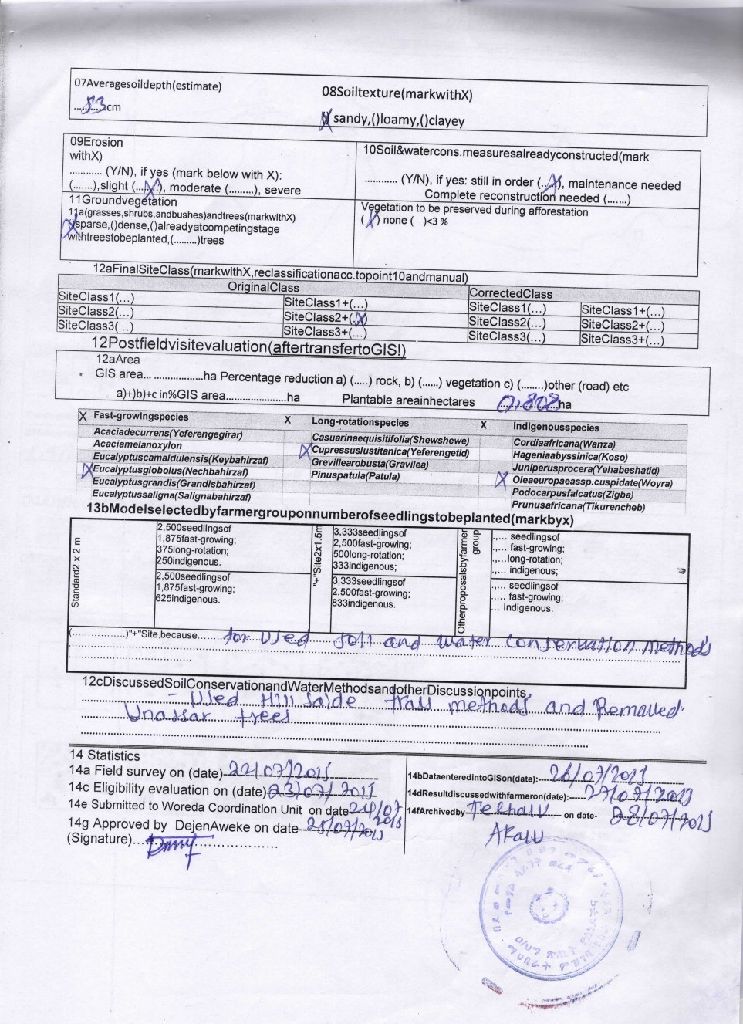 07Averagesoildepth(estimate)
....53cm
08Soiltexture(markwithX)
(X) sandy,()loamy,()clayey
09Erosion
withX)
............ (Y/N), if yes (mark below with X):
(.......),slight (...X..), moderate (.........), severe
10Soil&watercons.measuresalreadyconstructed(mark
............ (Y/N), if yes: still in order (..X), maintenance needed
Complete reconstruction needed (.......)
11Groundvegetation
11a(grasses,shrubs,andbushes)andtrees(markwithX)
(X)sparse,()dense,()alreadyatcompetingstage
withtreestobeplanted,(.........)trees
Vegetation to be preserved during afforestation
(X) none ( )<3 %
12aFinalSiteClass(markwithX,reclassificationacc.topoint10andmanual)
OriginalClass CorrectedClass
SiteClass1(...) SiteClass1+(...) SiteClass1(...) SiteClass1+(...)
SiteClass2(...) SiteClass2+(.X) SiteClass2(...) SiteClass2+(...)
SiteClass3(...) SiteClass3+(...) SiteClass3(...) SiteClass3+(...)
12Postfieldvisitevaluation(aftertransfertoGIS!)
12aArea
GIS area..................ha Percentage reduction a) (.....) rock, b) (......) vegetation c) (........)other (road) etc
a)+)b)+c in%GIS area.....................ha Plantable areainhectares 0.808ha
X Fast-growingspecies X Long-rotationspecies X Indigenousspecies
Acaciadecurrens(Yeferengegirar) Casuerinaequisitifolia(Shewshewe) Cordiaafricana(Wanza)
Acaciamelanoxylon X Cupressuslustitanica(Yeferengetid) Hageniaabyssinica(Koso)
Eucalyptuscamaldulensis(Keybahirzaf) Grevillearobusta(Gravilea) Juniperusprocera(Yehabeshatid)
X Eucalyptusglobolus(Nechbahirzaf) Pinuspatula(Patula) X Oleaeuropaeassp.cuspidate(Woyra)
Eucalyptusgrandis(Grandisbahirzaf) Podocarpusfalcatus(Zigba)
Eucalyptussaligna(Salignabahirzaf) Prunusafricana(Tikurencheb)
13bModelselectedbyfarmergrouponnumberofseedlingstobeplanted(markbyx)
Standard2 x 2 m
2,500seedlingsof
1,875fast-growing;
375long-rotation;
250indigenous.
2,500seedlingsof
1,875fast-growing;
625indigenous.
"+"Site2x1.5m
3,333seedlingsof
2,500fast-growing;
500long-rotation;
333indigenous;
3,333seedlingsof
2.500fast-growing;
833indigenous.
Otherproposalsbyfarmer
group
..... seedlingsof
..... fast-growing;
.....long-rotation;
..... indigenous;
..... seedlingsof
..... fast-growing;
indigenous.
(...............)"+"Site,because..... for Used Soil and water conservation methods
12cDiscussedSoilConservationandWaterMethodsandotherDiscussionpoints,
- Used Hill saide methods and Remaved
trees
14 Statistics
14a Field survey on (date) 22/07/2015
14bDataenteredintoGISon(date): 26/07/2015
14c Eligibility evaluation on (date) 23/07/2015
14dResultdiscussedwithfarmeron(date): 27/07/2015
14e Submitted to Woreda Coordination Unit on date 24/07/2015
14fArchivedby on date 28/07/2015
14g Approved by DejenAweke on date 25/07/2015
(Signature)